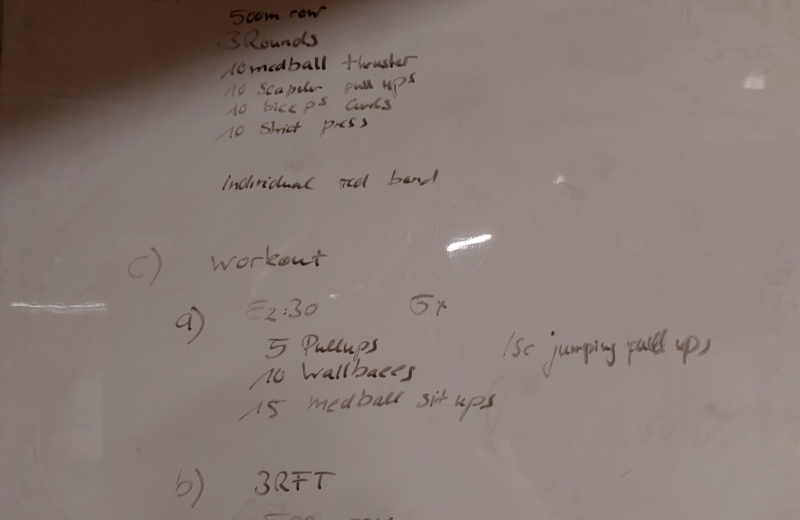 500m row
3 Rounds
10 medball thruster
10 Scapular pull ups
10 biceps curls
10 Strict press
Individual red band
c) Workout
a) E2:30 5x
5 Pullups /Sc jumping pull ups
10 Wallballs
15 medball sit ups
b) 3RFT